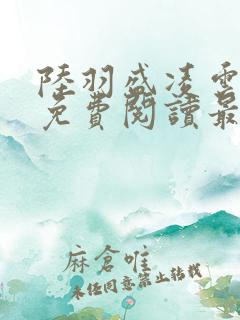 陸羽盛凌雲
免費閱讀最
麻倉唯
未經同意禁止轉載